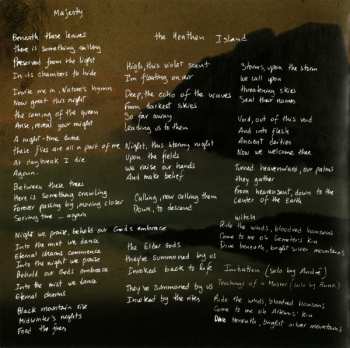 Majesty
Beneath these leaves
there is something calling
Preserved from the light
In its chambers to hide
Invite me in, Nature's hymn
Now great this night
the coming of the queen
Arise, reveal your might
A night-time fume
these fires are all a part of me
At daybreak I die
Again.
Between these trees
Here is something crawling
Forever passing by, moving closer
Serving time - again
Night we praise, behold our Gods embrace
Into the mist we dance
Eternal charms commence
Into the night we praise
Behold our Gods embrace
Into the mist we dance
Eternal charms
Black mountain rise
Midwinter's nights
Feed the fires
the Heathen Island
High, this violet scent
I'm floating on air
Deep, the echo of the waves
From darkest skies
So far away
Leading us to them
Night, this stormy night
Upon the fields
we raise our hands
And make belief
Calling, now calling them
Down, to descend
the Elder Gods
They're summoned by us
Invoked back to life
They're summoned by us
Invoked by the rites
Storms, upon the storm
We call upon
threatening skies
Seal their names
Void, out of this void
And into flesh
Ancient deities
Now we welcome thee
Turned heavenwards, our palms
they gather
From heaven sent, down to the
center of the Earth
witch
Ride the winds, bloodred horizons
Come to me oh Demeter's kin
Dive beneath, bright silver mountains
Invitation (solo by André)
Teachings of a Master (solo by
Ride the winds, bloodred horizons
Come to me oh kin
Dive beneath, bright silver mountains